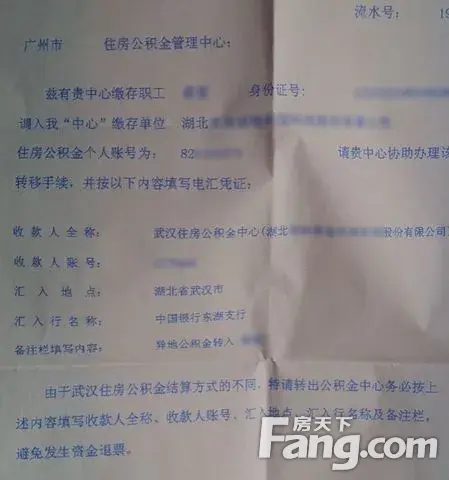 流水号： 19
广州市 住房公积金管理中心：
兹有贵中心缴存职工 身份证号：
调入我“中心”缴存单位 湖北
住房公积金个人账号为： 82 请贵中心协助办理该
转移手续，并按以下内容填写电汇凭证：
收款人全称： 武汉住房公积金中心(湖北 股份有限公司)
收款人账号：
汇入地点： 湖北省武汉市
汇入行名称： 中国银行东湖支行
备注栏填写内容： 异地公积金转入
由于武汉住房公积金结算方式的不同，特请转出公积金中心务必按上
述内容填写收款人全称、收款人账号、汇入地点、汇入行名称及备注栏，
避免发生资金退票。
房天下
Fang.com